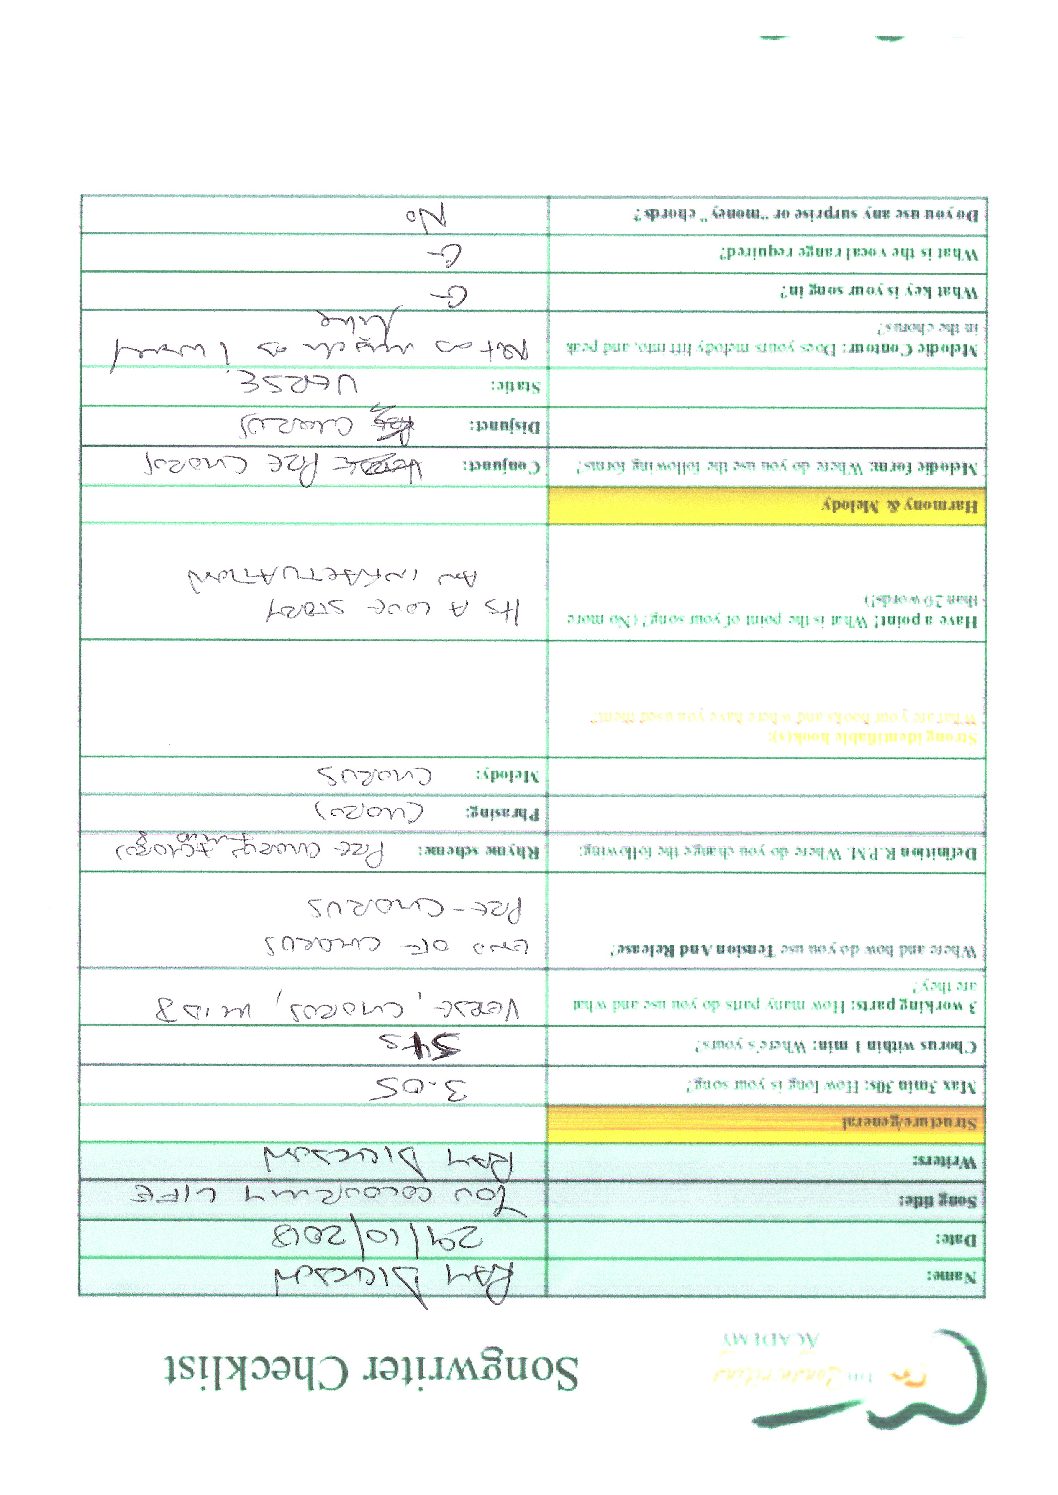 The Songwriting
ACADEMY
Songwriter Checklist
Name: RAY DICKSON
Date: 29/10/2018
Song title: YOU COLOUR MY LIFE
Writers: RAY DICKSON
Structure/general
Max 3min 30s: How long is your song? 3.05
Chorus within 1 min: Where's yours? 54s
3 working parts: How many parts do you use and what VERSE, CHORUS, MID 8
are they?
Where and how do you use Tension And Release? END OF CHORUS
PRE-CHORUS
Definition R.P.M. Where do you change the following: Rhyme scheme: PRE-CHORUS
Phrasing: CHORUS
Melody: CHORUS
Strong identifiable hook(s):
What are your hooks and where have you used them?
Have a point! What is the point of your song? (No more ITS A LOVE STORY
than 20 words!) AN INFACTUATION
Harmony & Melody
Melodic form: Where do you use the following forms? Conjunct: VERSE PRE CHORUS
Disjunct: CHORUS
Static: VERSE
Melodic Contour: Does yours melody lift into, and peak Not as much as I would
in the chorus? like
What key is your song in? G
What is the vocal range required? G
Do you use any surprise or "money" chords? No